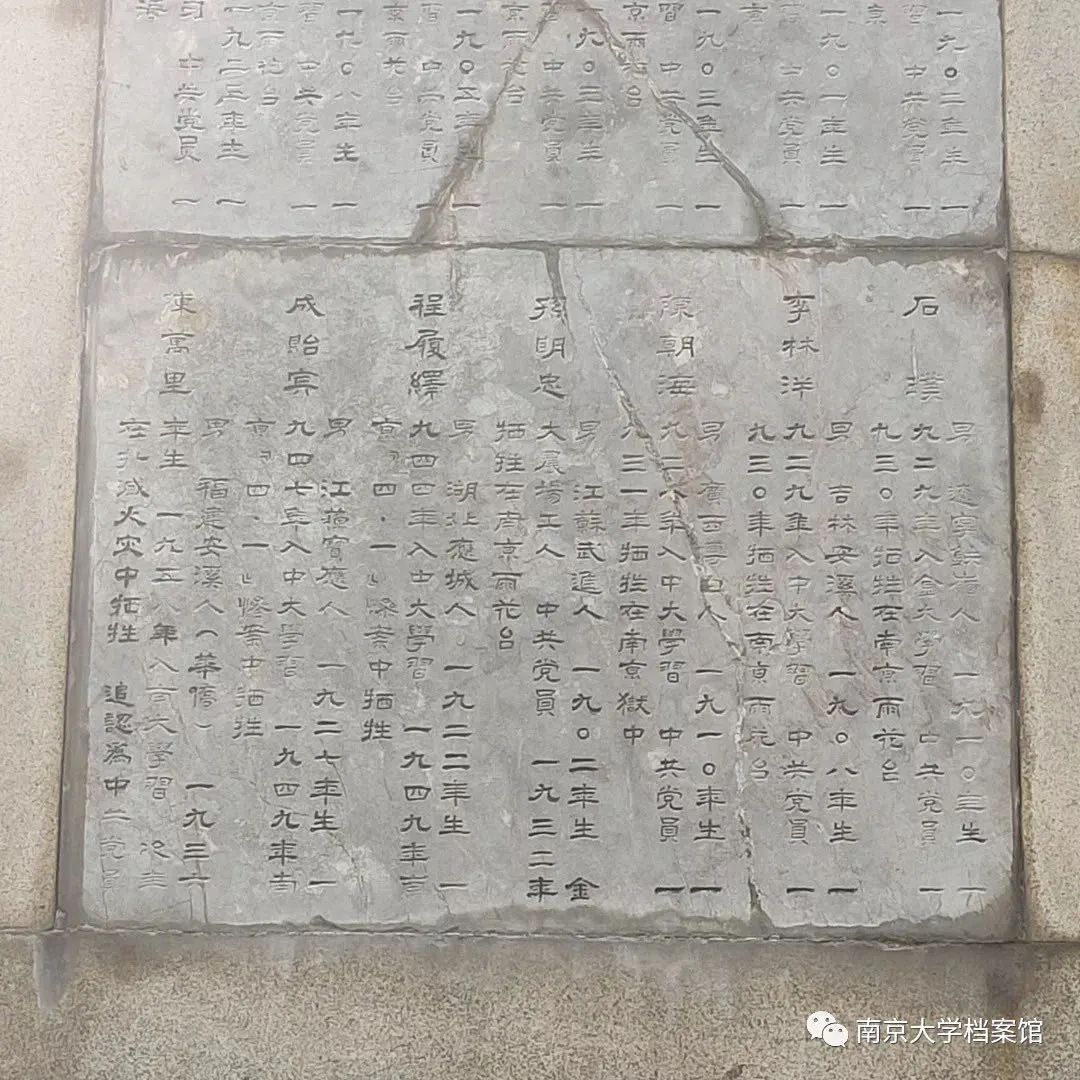 一九〇二年生 一
習 中共党員 一
京
一九〇一年生 一
中共党員 一
京
一九〇三年生 一
習 中共党員 一
京雨花台
九〇三年生 一
中共党員 一
京雨花台
一九〇五年生 一
習 中共党員 一
京雨花台
一九〇八年生 一
習 中共党員 一
京雨花台
一九二三年生 一
习 中共党員 一
海
男 遼寧 人 一九一〇年生 一
石璞 九二九年入金大學習 中共党員 一
九三〇年牺牲在南京雨花台
男 吉林安溪人 一九〇八年生 一
李林洋 九二九年入中大學習 中共党員 一
九三〇年牺牲在南京雨花台
男 廣西 人 一九一〇年生 一
陳朝海 九二八年入中大學習 中共党員 一
九三一年牺牲在南京獄中
男 江蘇武進人 一九〇二年生 金
孫明忠 大農場工人 中共党員 一九三二年
牺牲在南京雨花台
男 湖北應城人 一九二二年生 一
程履繹 九四四年入中大學習 一九四九年南
京「四·一」慘案中牺牲
男 江蘇寶應人 一九二七年生 一
成貽宾 九四七年入中大學習 一九四九年南
京「四·一」慘案中牺牲
男 福建安溪人（華僑） 一九三
陳萬里 年生 一九五八年入南大學習 次年
在扑滅火灾中牺牲 追認爲中共党員
南京大学档案馆